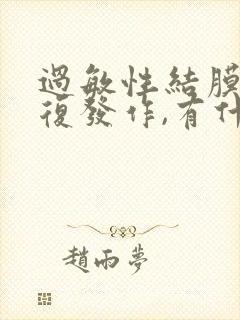 過敏性結膜
復發作,有什
趙雨夢